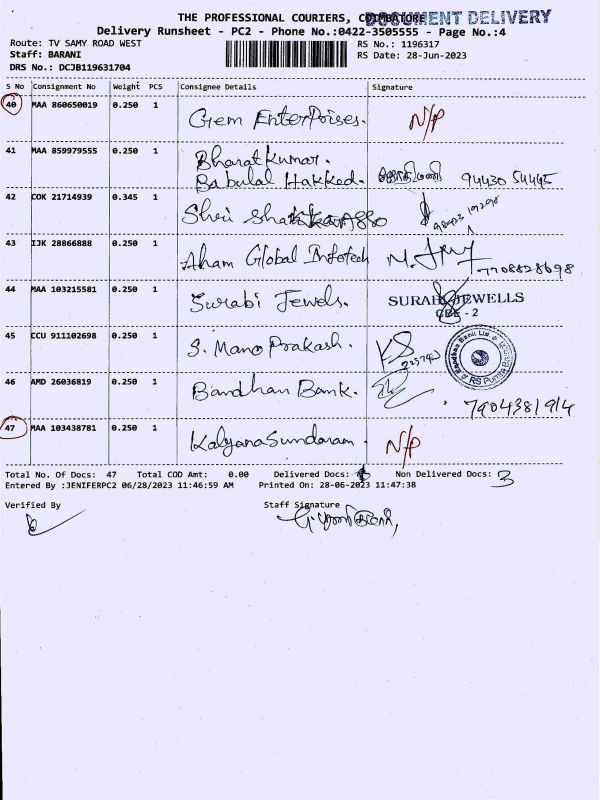 THE PROFESSIONAL COURIERS, COIMBATORE
DOCUMENT DELIVERY
Delivery Runsheet - PC2 - Phone No.:0422-3505555 - Page No.:4
Route: TV SAMY ROAD WEST RS No.: 1196317
Staff: BARANI RS Date: 28-Jun-2023
DRS No.: DCJB119631704
S No Consignment No Weight PCS Consignee Details Signature
40 MAA 860650019 0.250 1 Gem Enterprises. N/P
41 MAA 859979555 0.250 1 Bharat Kumar.
Babulal Hakked. 94430 54445
42 COK 21714939 0.345 1 Shri
43 IJK 28866888 0.250 1 Aham Global Infotech
7708828698
44 MAA 103215581 0.250 1 Surabi Jewels. SURABI JEWELLS
CBE - 2
45 CCU 911102698 0.250 1 S. Mano Prakash. Bandhan Bank Ltd.
46 AMD 26036819 0.250 1 Bandhan Bank. 7904381914
47 MAA 103438781 0.250 1 Kalyana Sundaram. N/P
Total No. Of Docs: 47 Total COD Amt: 0.00 Delivered Docs: Non Delivered Docs: 3
Entered By :JENIFERPC2 06/28/2023 11:46:59 AM Printed On: 28-06-2023 11:47:38
Verified By Staff Signature